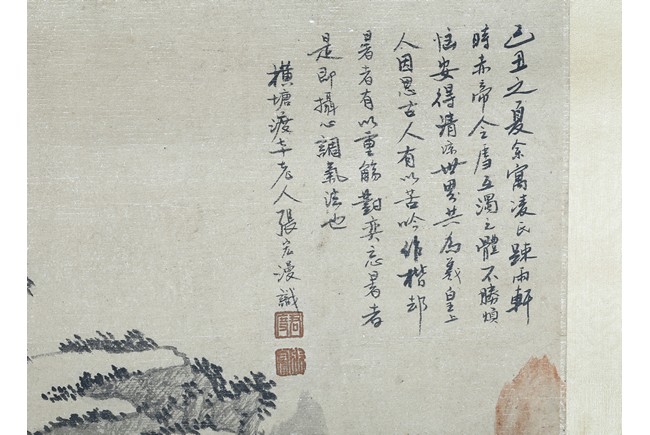 己丑之夏余寓凌氏踈雨軒
時赤帝令虐五濁之體不勝煩
惱安得清涼世界共為羲皇上
人因思古人有以苦吟作楷却
暑者有以重觴對奕忘暑者
是即攝心調氣法也
橫塘渡老人張宏漫識